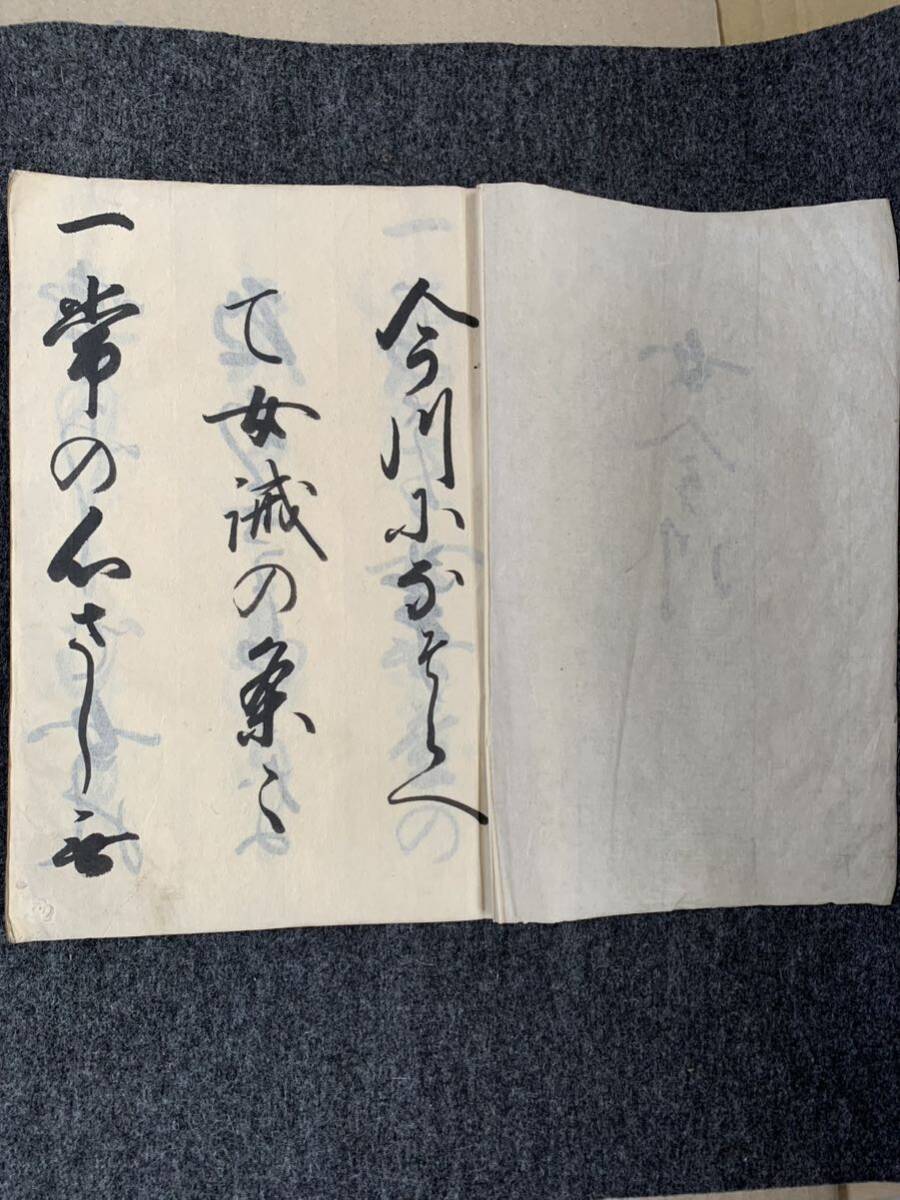 女今川
今川になそらへ
て女誡の条々
一常の心さし無